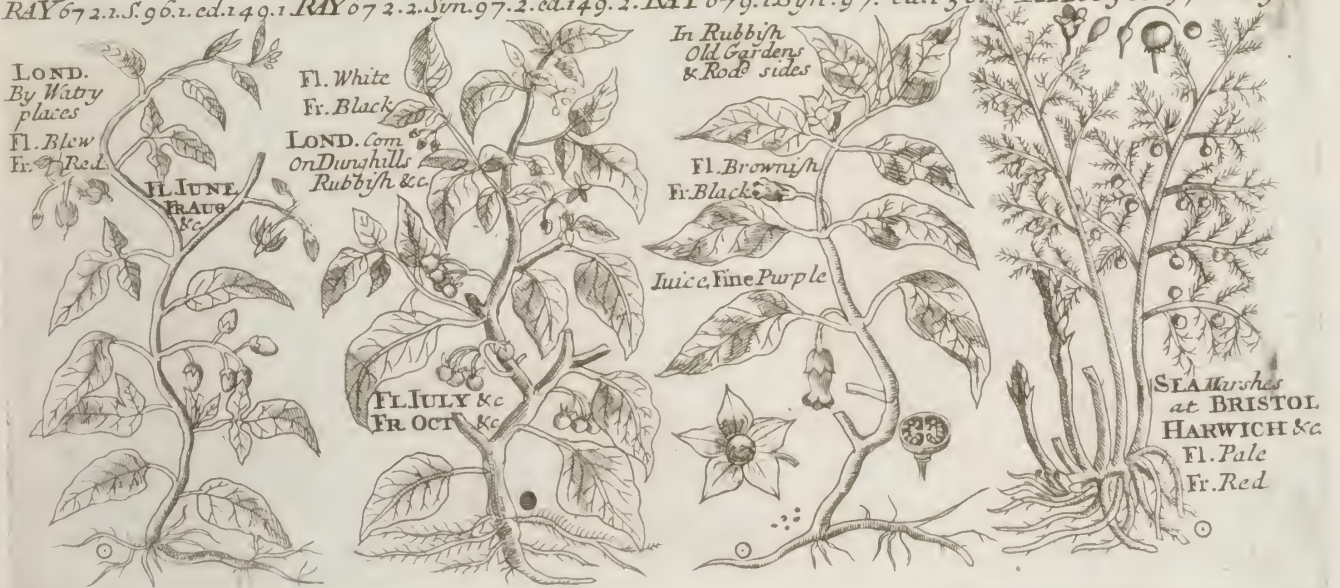 RAY 672.1.S.96.1.ed.149.1 RAY 672.2.Syn.97.2.ed.149.2. RAY 679.1.Syn.97.
LOND.
By Watry
places
Fl. Blew
Fr. Red
FL. IUNE
FR AUG
&c
Fl. White
Fr. Black
LOND. Com
On Dunghills
Rubbish &c.
FL. IULY &c
FR OCT &c.
In Rubbish
Old Gardens
& Rod sides
Fl. Brownish
Fr. Black
Iuice, Fine Purple
SEA Marshes
at BRISTOL
HARWICH &c
Fl. Pale
Fr. Red